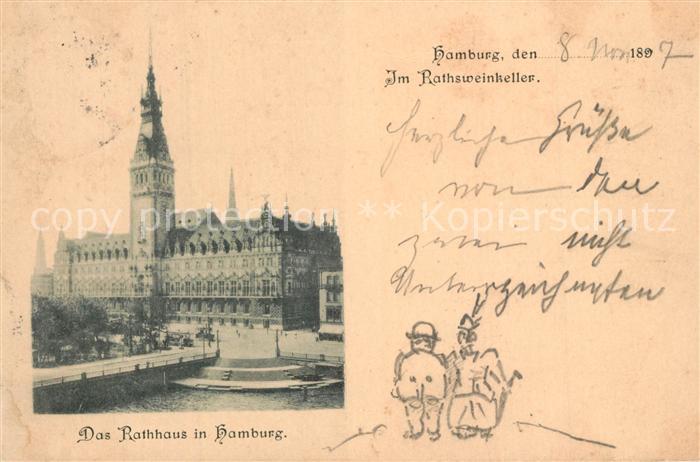 Hamburg, den 8 Nov 1897
Im Rathsweinkeller.
herzliche Grüße
von den
zwei nicht
Unterzeichneten
copy protection ** Kopierschutz
Das Rathhaus in Hamburg.